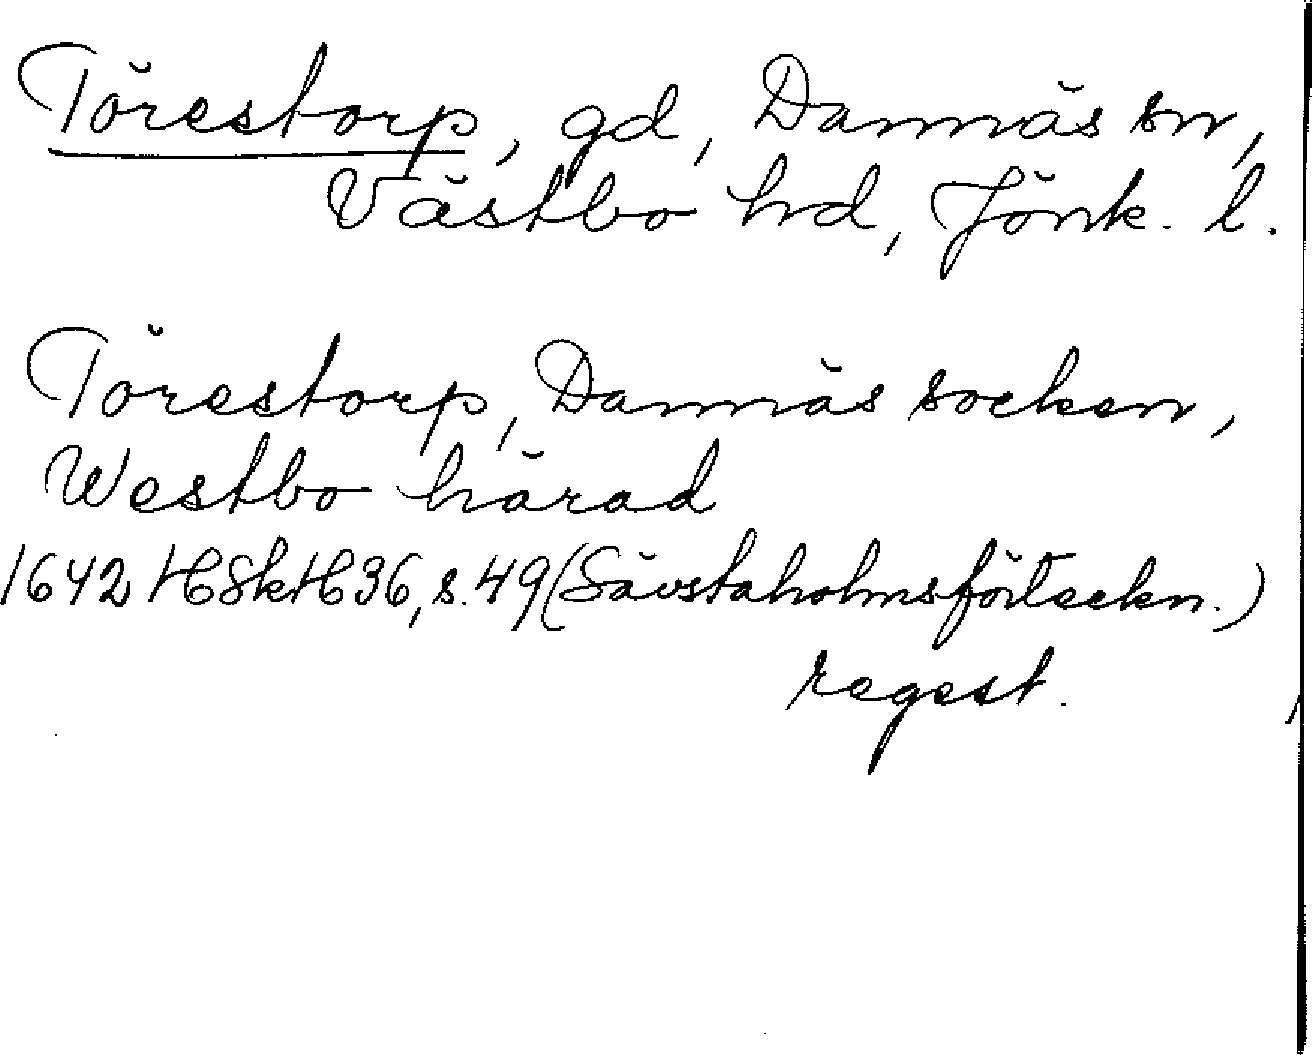 Törestorp, gd, Dannäs sn,
Västbo hd, Jönk. l.
Törestorp, Dannäs socken,
Westbo härad
1642 HSkH 36, s. 49 (Sävstaholmsförteckn.)
regest.